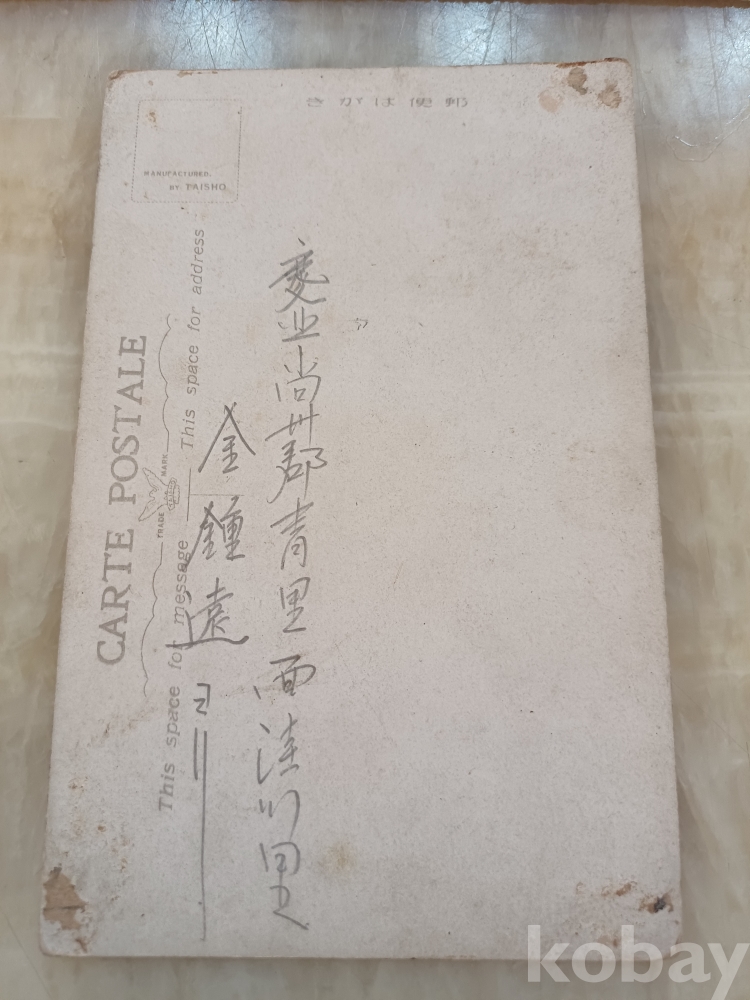 郵便はがき
MANUFACTURED.
BY TAISHO
CARTE POSTALE
TRADE MARK
This space for message
This space for address
慶北尚州郡青里面佳川里
金鍾遠
kobay